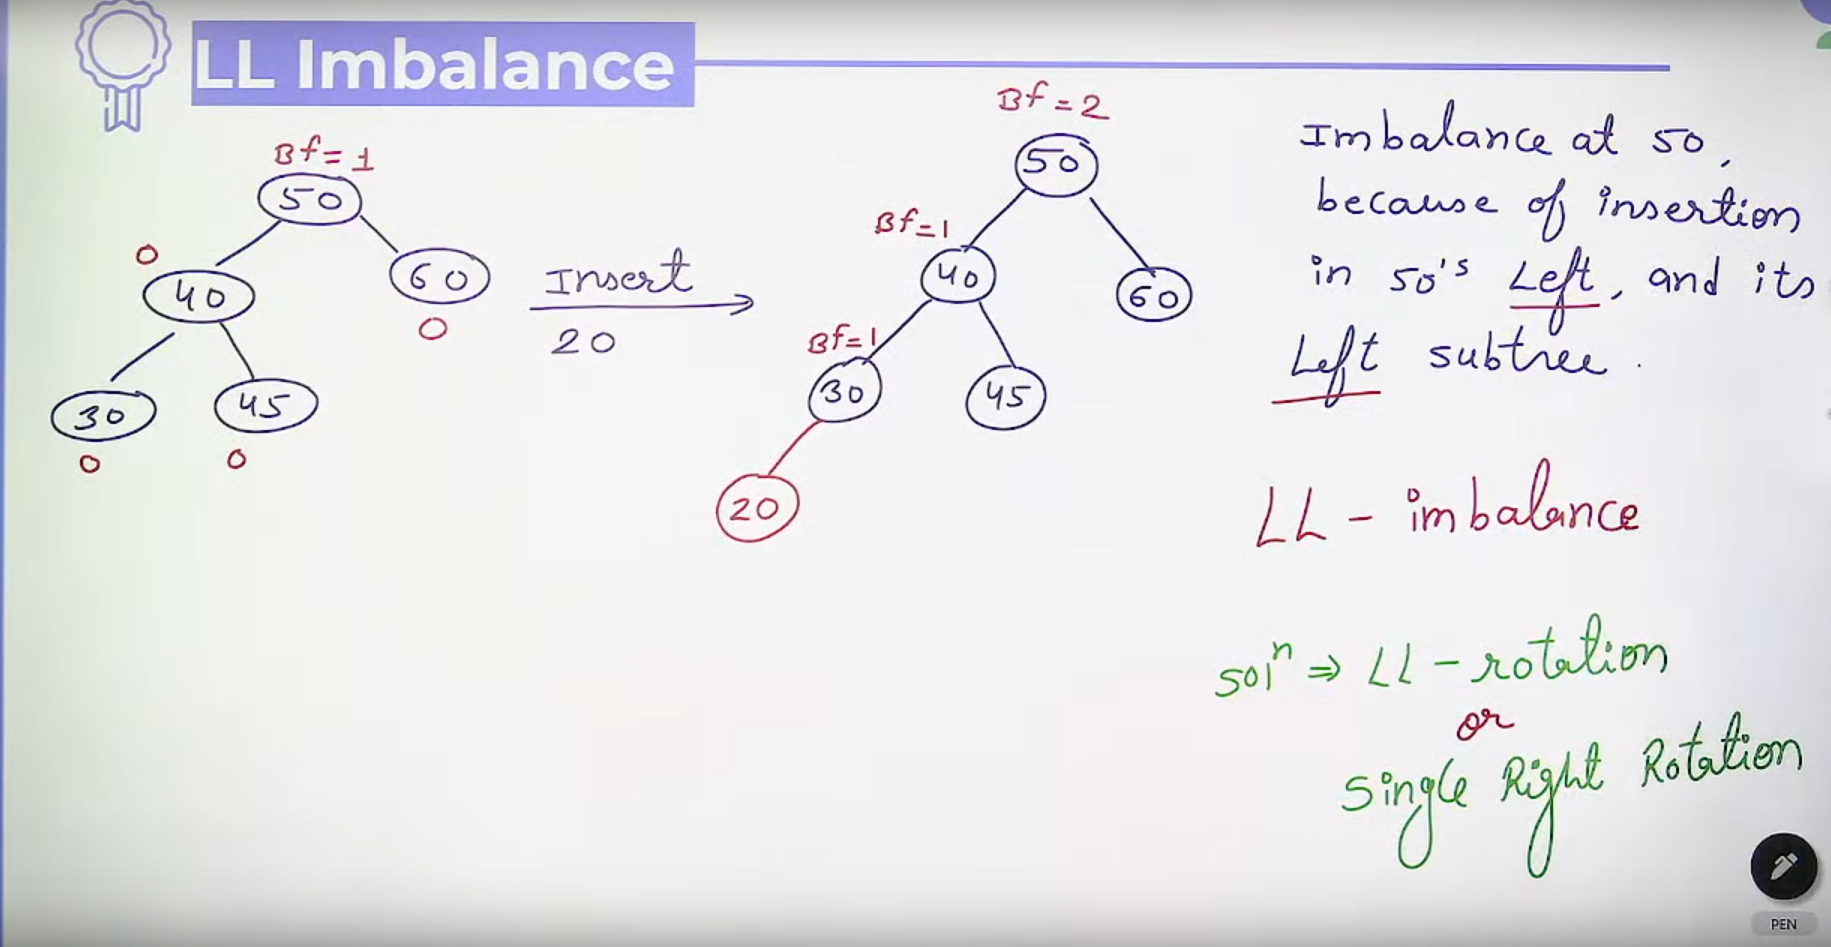 LL Imbalance
Bf=1
50
0
40
60
0
30
45
0
0
Insert
20
Bf=2
50
Bf=1
40
60
Bf=1
30
45
20
Imbalance at 50,
because of insertion
in 50's Left, and its
Left subtree.
LL - imbalance
solⁿ ⇒ LL - rotation
or
Single Right Rotation
PEN